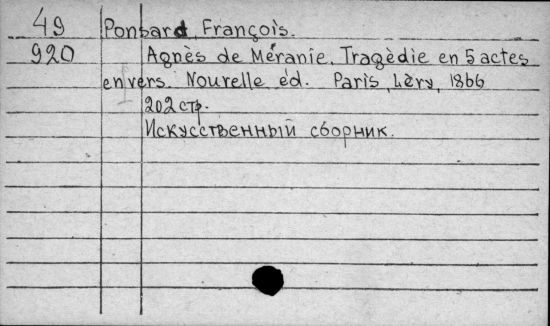 49 Ponsard, François.
920 Agnès de Méranie. Tragèdie en 5 actes
en vers. Nourelle éd. Paris, Lèvy, 1866
202 стр.
Искусственный сборник.